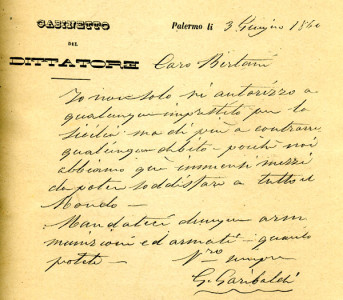 GABINETTO
DEL
DITTATORE
Palermo li 3 Giugno 1860
Caro Bertani
Io non solo vi autorizzo a
qualunque imprestito per la
Sicilia ma di più a contrarre
qualunque debito - poiché noi
abbiamo quì immensi mezzi
da poter soddisfare a tutto il
Mondo -
Mandateci dunque armi
munizioni ed armati - quanto
potete - Vro sempre
G. Garibaldi